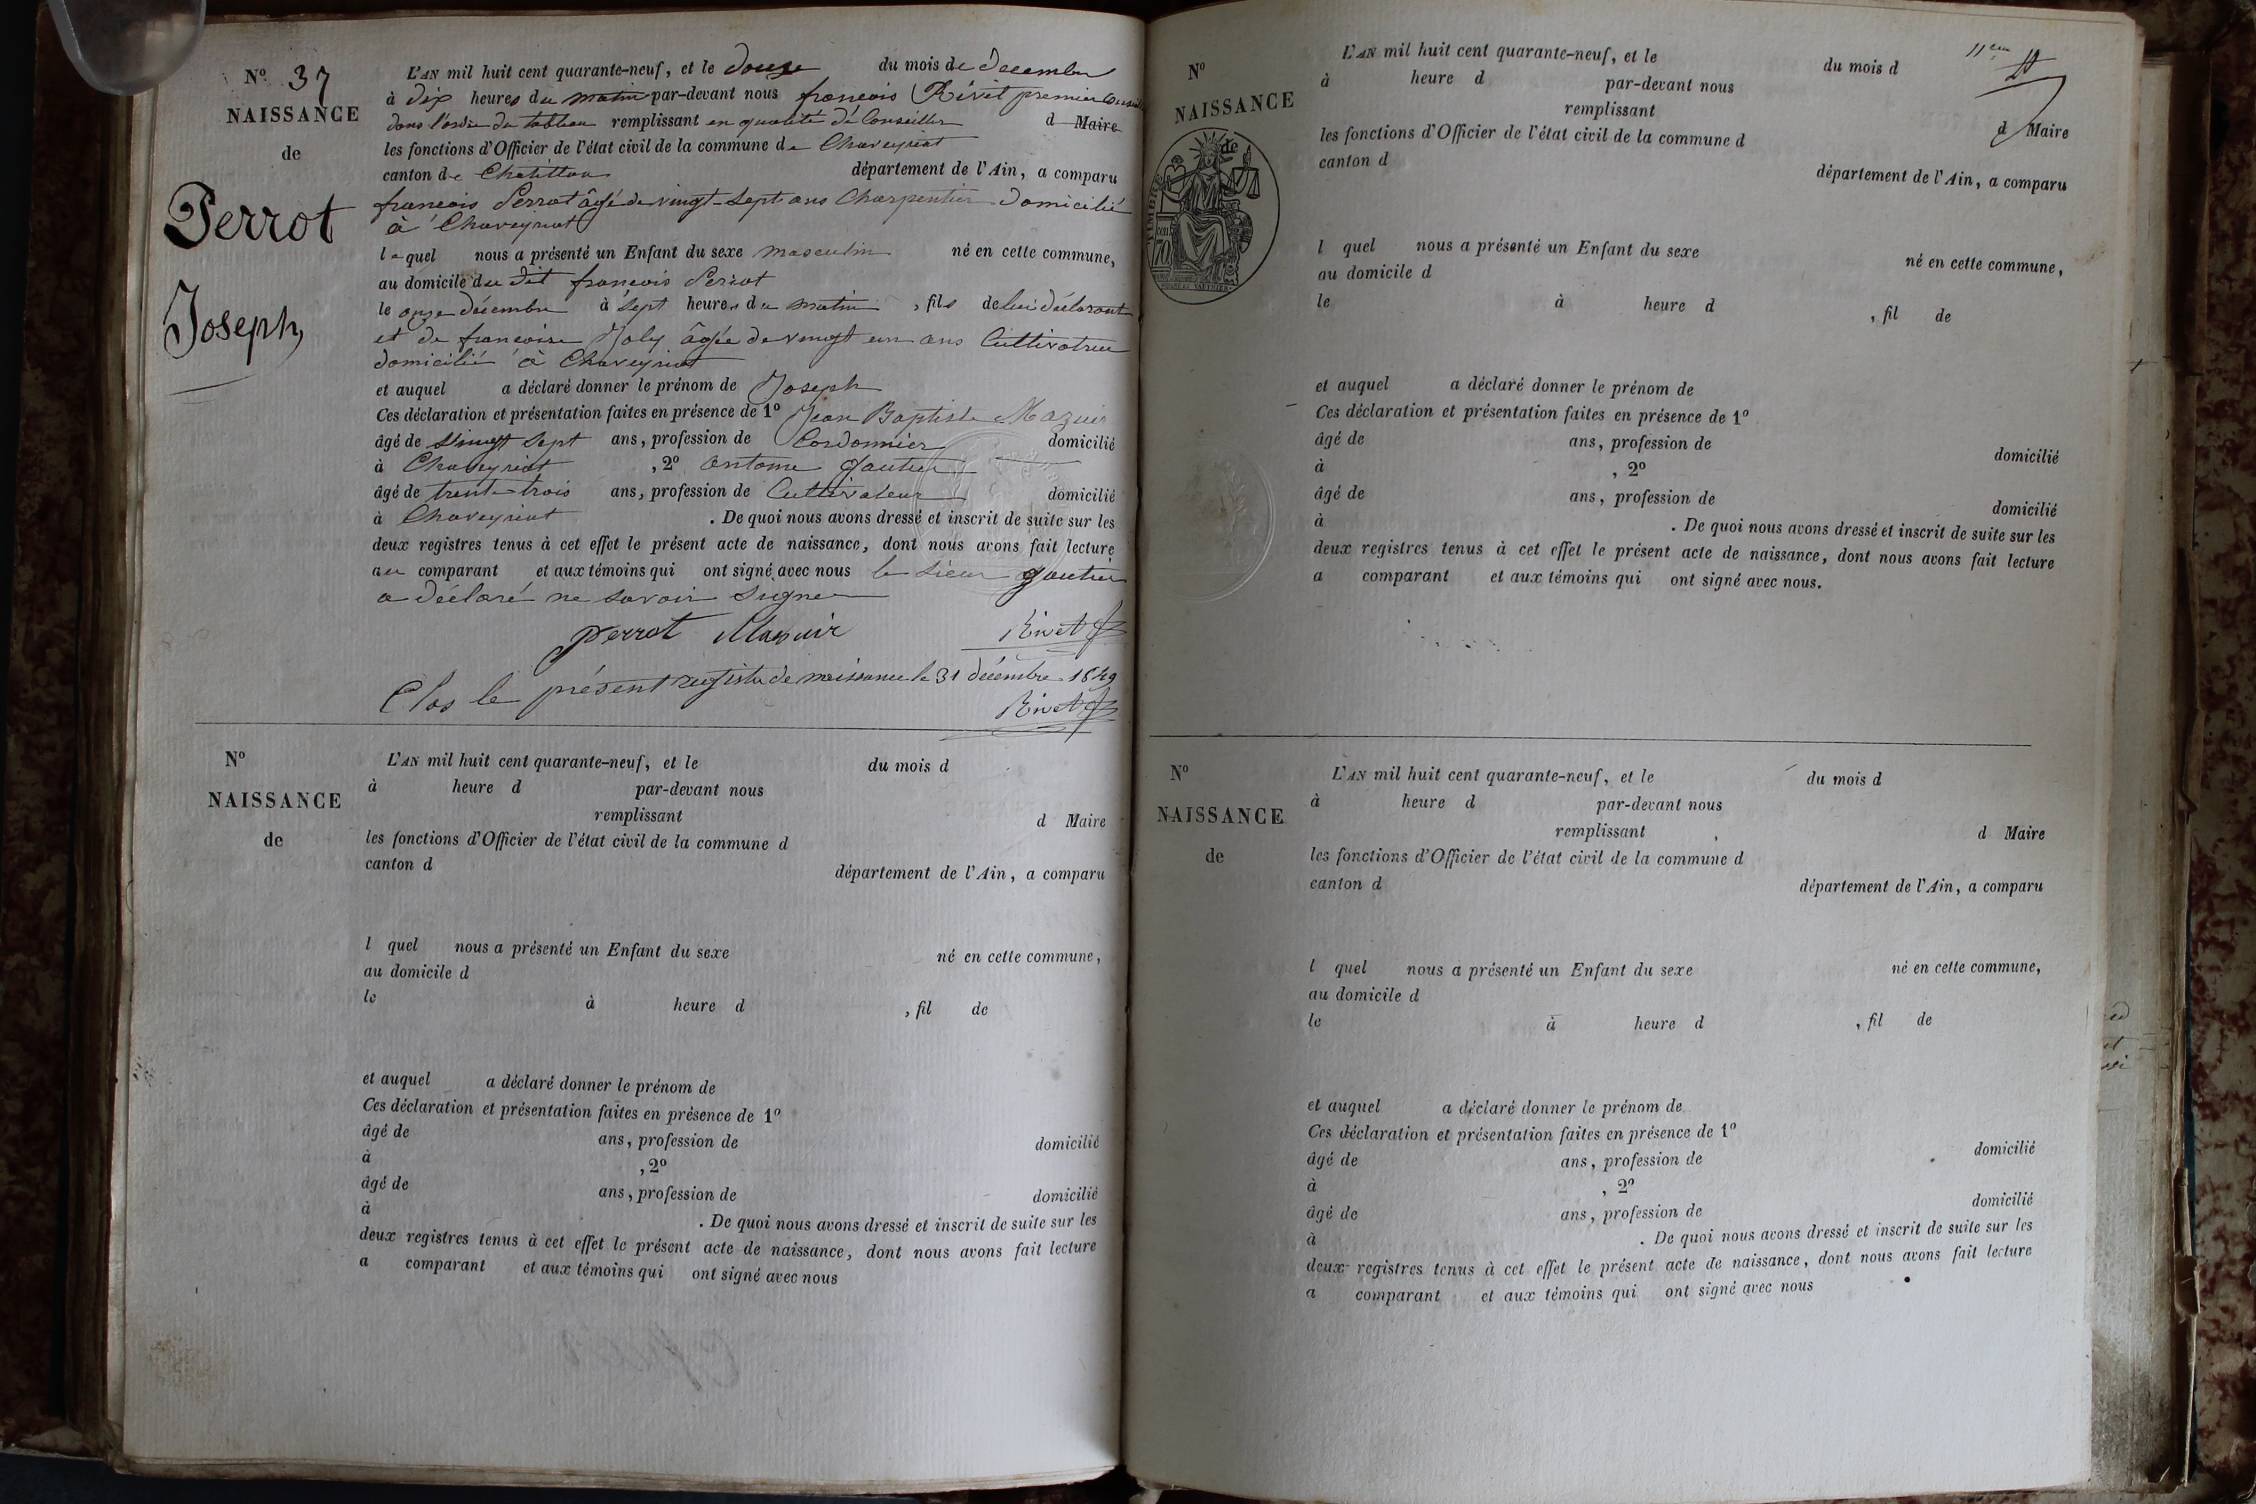 Nº 37
NAISSANCE
de
Perrot
Joseph,
L'AN mil huit cent quarante-neuf, et le douze du mois de Decembre
à dix heures du matin par-devant nous francois Rivet premier Conseiller
dans l'ordre du tableau remplissant en qualité de Conseiller d Maire
les fonctions d'Officier de l'état civil de la commune de Chaveyriat
canton de Chatillon département de l'Ain, a comparu
francois Perrot âgé de vingt-sept ans Charpentier domicilié
à Chaveyriat
lequel nous a présenté un Enfant du sexe masculin né en cette commune,
au domicile du dit francois Perrot
le onze décembre à sept heures du matin, fils de lui déclarant
et de francoise Joly âgée de vingt un ans Cultivatrice
domicilié à Chaveyriat
et auquel a déclaré donner le prénom de Joseph
Ces déclaration et présentation faites en présence de 1º Jean Baptiste Mazuir
âgé de vingt sept ans, profession de Cordonnier domicilié
à Chaveyriat, 2º antoine gautier
âgé de trente-trois ans, profession de Cultivateur domicilié
à Chaveyriat. De quoi nous avons dressé et inscrit de suite sur les
deux registres tenus à cet effet le présent acte de naissance, dont nous avons fait lecture
au comparant et aux témoins qui ont signé avec nous le sieur gautier
a déclaré ne savoir signer
perrot Mazuir Rivet
Clos le présent registre de naissance le 31 décembre 1849
Rivet
Nº
NAISSANCE
de
L'AN mil huit cent quarante-neuf, et le du mois d
à heure d par-devant nous
remplissant d Maire
les fonctions d'Officier de l'état civil de la commune d
canton d département de l'Ain, a comparu
l quel nous a présenté un Enfant du sexe né en cette commune,
au domicile d
le à heure d , fil de
et auquel a déclaré donner le prénom de
Ces déclaration et présentation faites en présence de 1º
âgé de ans, profession de domicilié
à , 2º
âgé de ans, profession de domicilié
à . De quoi nous avons dressé et inscrit de suite sur les
deux registres tenus à cet effet le présent acte de naissance, dont nous avons fait lecture
a comparant et aux témoins qui ont signé avec nous
11em
Nº
NAISSANCE
de
L'AN mil huit cent quarante-neuf, et le du mois d
à heure d par-devant nous
remplissant d Maire
les fonctions d'Officier de l'état civil de la commune d
canton d département de l'Ain, a comparu
TIMBRE
70
l quel nous a présenté un Enfant du sexe né en cette commune,
au domicile d
le à heure d , fil de
et auquel a déclaré donner le prénom de
Ces déclaration et présentation faites en présence de 1º
âgé de ans, profession de domicilié
à , 2º
âgé de ans, profession de domicilié
à . De quoi nous avons dressé et inscrit de suite sur les
deux registres tenus à cet effet le présent acte de naissance, dont nous avons fait lecture
a comparant et aux témoins qui ont signé avec nous.
Nº
NAISSANCE
de
L'AN mil huit cent quarante-neuf, et le du mois d
à heure d par-devant nous
remplissant d Maire
les fonctions d'Officier de l'état civil de la commune d
canton d département de l'Ain, a comparu
l quel nous a présenté un Enfant du sexe né en cette commune,
au domicile d
le à heure d , fil de
et auquel a déclaré donner le prénom de
Ces déclaration et présentation faites en présence de 1º
âgé de ans, profession de domicilié
à , 2º
âgé de ans, profession de domicilié
à . De quoi nous avons dressé et inscrit de suite sur les
deux registres tenus à cet effet le présent acte de naissance, dont nous avons fait lecture
a comparant et aux témoins qui ont signé avec nous